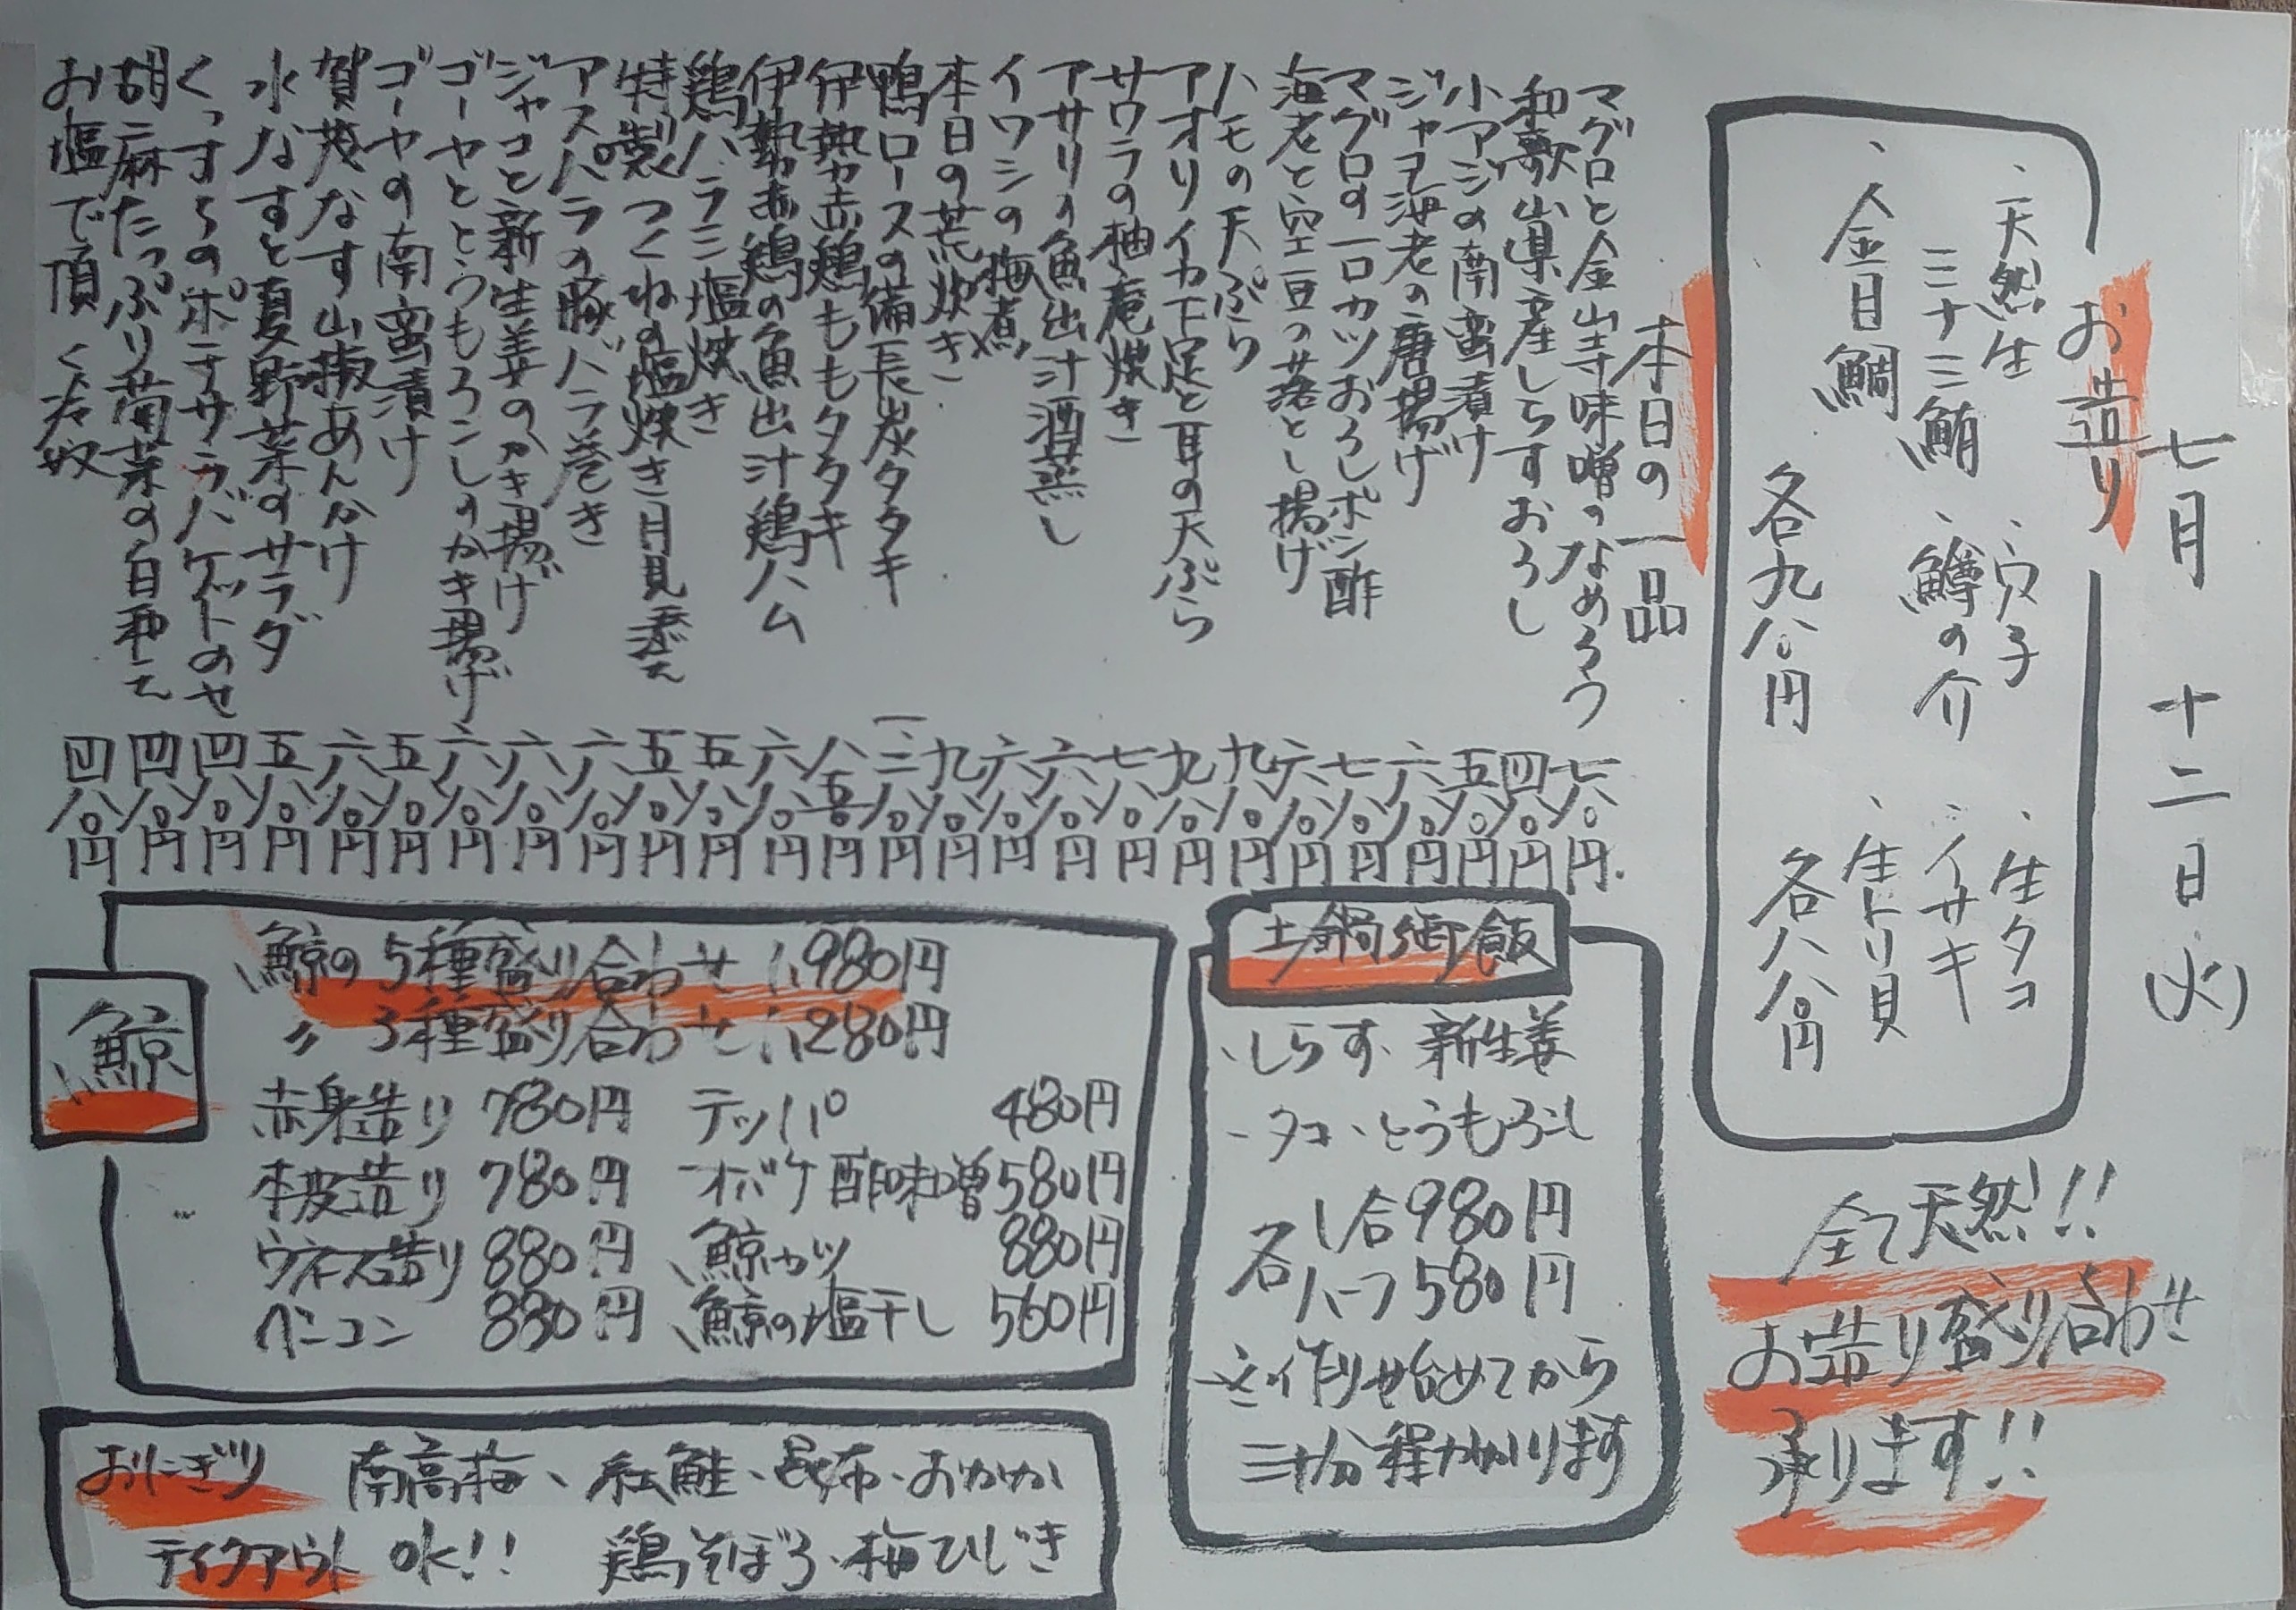 七月 十二日(火)
お造り
・天然生 ・穴子 ・生タコ
ミナミ鮪 ・鱒の介 ・イサキ
・金目鯛 ・生トリ貝
各九八〇円 各八八〇円
全て天然!!
お造り盛り合わせ
承ります!!
本日の一品
マグロと金山寺味噌のなめろう 七八〇円
和歌山県産しらすおろし 四八〇円
小アジの南蛮漬け 五八〇円
ジャコ海老の唐揚げ 六八〇円
マグロの一口カツおろしポン酢 七八〇円
海老と空豆の落とし揚げ 六八〇円
ハモの天ぷら 九八〇円
アオリイカ下足と耳の天ぷら 九八〇円
サワラの柚庵焼き 七八〇円
アサリの魚出汁酒蒸し 六八〇円
イワシの梅煮 六八〇円
本日の荒炊き 九八〇円
鴨ロースの備長炭タタキ 一二八〇円
伊勢赤鶏ももタタキ 八五〇円
伊勢赤鶏の魚出汁鶏ハム 六八〇円
鶏ハラミ塩焼き 五八〇円
特製つくねの塩焼き月見添え 五八〇円
アスパラの豚バラ巻き 六八〇円
ジャコと新生姜のかき揚げ 六八〇円
ゴーヤととうもろこしのかき揚げ 六八〇円
ゴーヤの南蛮漬け 五八〇円
賀茂なす山椒あんかけ 六八〇円
水なすと夏野菜のサラダ 五八〇円
くっすらのポテサラバケットのせ 四八〇円
胡麻たっぷり菊菜の白和え 四八〇円
お塩で頂く冷奴 四八〇円
土鍋御飯
・しらす、新生姜
・タコ、とうもろこし
各 1合980円
ハーフ580円
※作り始めてから
三十分程かかります
鯨
鯨の5種盛り合わせ 1,980円
〃 3種盛り合わせ 1,280円
赤身造り 780円 テッパ 480円
本皮造り 780円 オバケ酢味噌 580円
ウネス造り 880円 鯨カツ 880円
ベーコン 880円 鯨の塩干し 560円
おにぎり 南高梅、紅鮭、昆布、おかか
テイクアウト OK!! 鶏そぼろ、梅ひじき